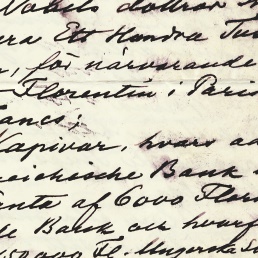 Nobels dottrar
Ett Hundra Tu
, för närvarande
Florentin i Paris
ancs;
Kapivar, hvars a
reichische Bank
änta af 6000 Flor
Bank och hvarf
50000 Fl. Ungerska